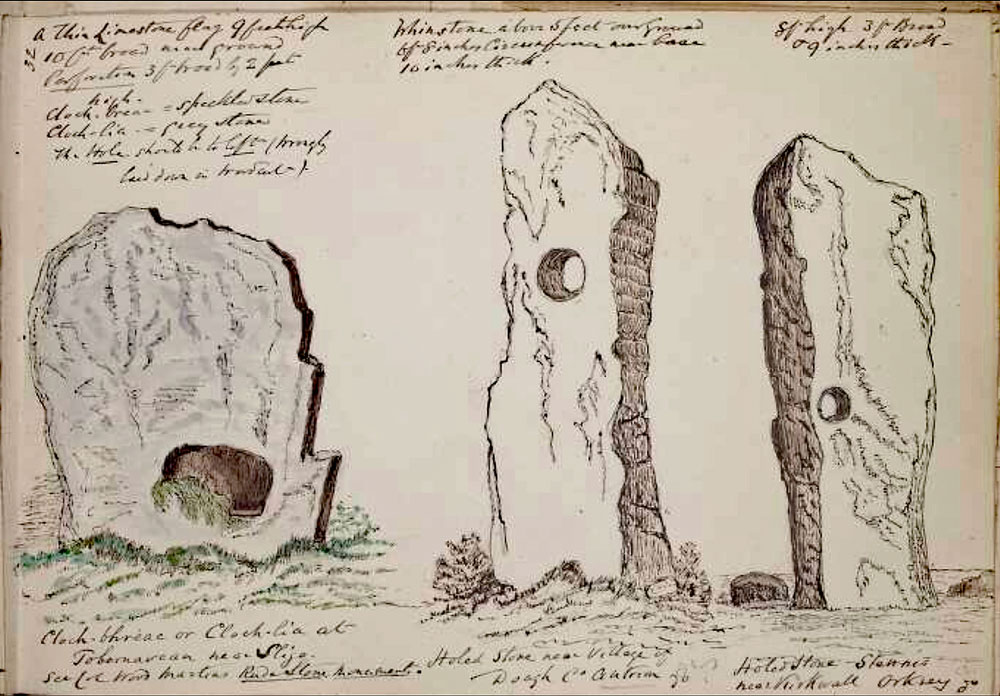 A Thin Limestone flag 9 feet high
10 ft broad near ground
Perforation 3 ft broad by 2 feet
high.
Cloch-breac = speckled stone
Cloch-lia = grey stone
The Hole should be to left (wrongly
laid down in woodcut)
32
Whinstone above 5 feet over ground
6f 8 inches Circumference near base
10 inches thick.
8f high 3f Broad
9 inches thick-
Cloch-bhreac or Cloch-lia at
Tobernavean near Sligo.
See Col Wood Martins Rude Stone monuments.
Holed Stone near Village of
Doagh Co Antrim
Holed Stone - Stennis
near Kirkwall Orkney